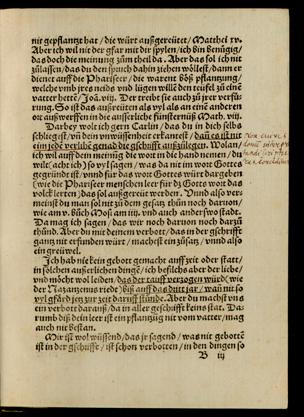 nit gepflantzt hat / die würt außgereütet / Matthei xv.
Aber ich wil nit der gfar mit dir spylen / ich bin benügig /
das doch die meinung zům theil da. Aber das sol ich nit
zůlassen / das du den spruch dahin ziehen wöllest / dann er
dienet auff die Phariseer / die warent böß pflantzung /
welche vmb jres neids vnd lügen willē den teüfel zů einē
vatter hettē / Joā. viij. Der treibt sie auch zů jrer verfü-
rung. So ist das außreüten als vyl als an einē anderen
ort außwerffen in die ausserliche fünsternüß Math. viij.
Darbey wolt ich gern Carlin / das du in dich selbs
schlegist / vn̄ dein vnwüssenheit erkantest / dan̄ es ist nit
ein jedē verlihē genad die gschrifft außzůlegen. Wolan /
ich wil auff dein meinung die wort in die hand nemen / du
wilt (acht ich) so vyl sagen / was da nit im wort Gottes
gegründt ist / vnnd für das wort Gottes würt dargeben
(wie die Phariseer menschen leer für dz Gottes wort das
volck lertēn) das sol außgereüt werdēn. Vnnd also ver
meinst du man sol nit zů dem gesatz thůn noch daruon /
wie am v. bůch Mosi am iiij. vnd auch anderßwo stadt.
Da mag ich sagen / das wir noch daruon noch darzů
thůnd. Aber du mit deinem verbott / das in der gschrifft
gantz nit erfunden würt / machest ein zůsatz / vnnd also
ein greüwel.
Ich hab nie kein gebott gemacht auff zeit oder statt /
in solchen außerlichen dingē / ich befilchs aber der liebe /
vnd möcht wol leiden / das der tauff verzogen würd (wie
der Nazarenus riedt) biß auff das dritt jar / wān nit so
vyl gfärd jetz zur zeit darauff stünde. Aber du machst vns
ein verbott darauß / da in aller geschrifft keins stat. Da-
rumb diß dein leer ist ein pflantzūg nit vom vatter / mag
auch nit bestan.
Mir ist wol wüssend / das jr sagend / was nit gebottē
ist in der gschrifft / ist schon verbotten / in den dingen so
B iij